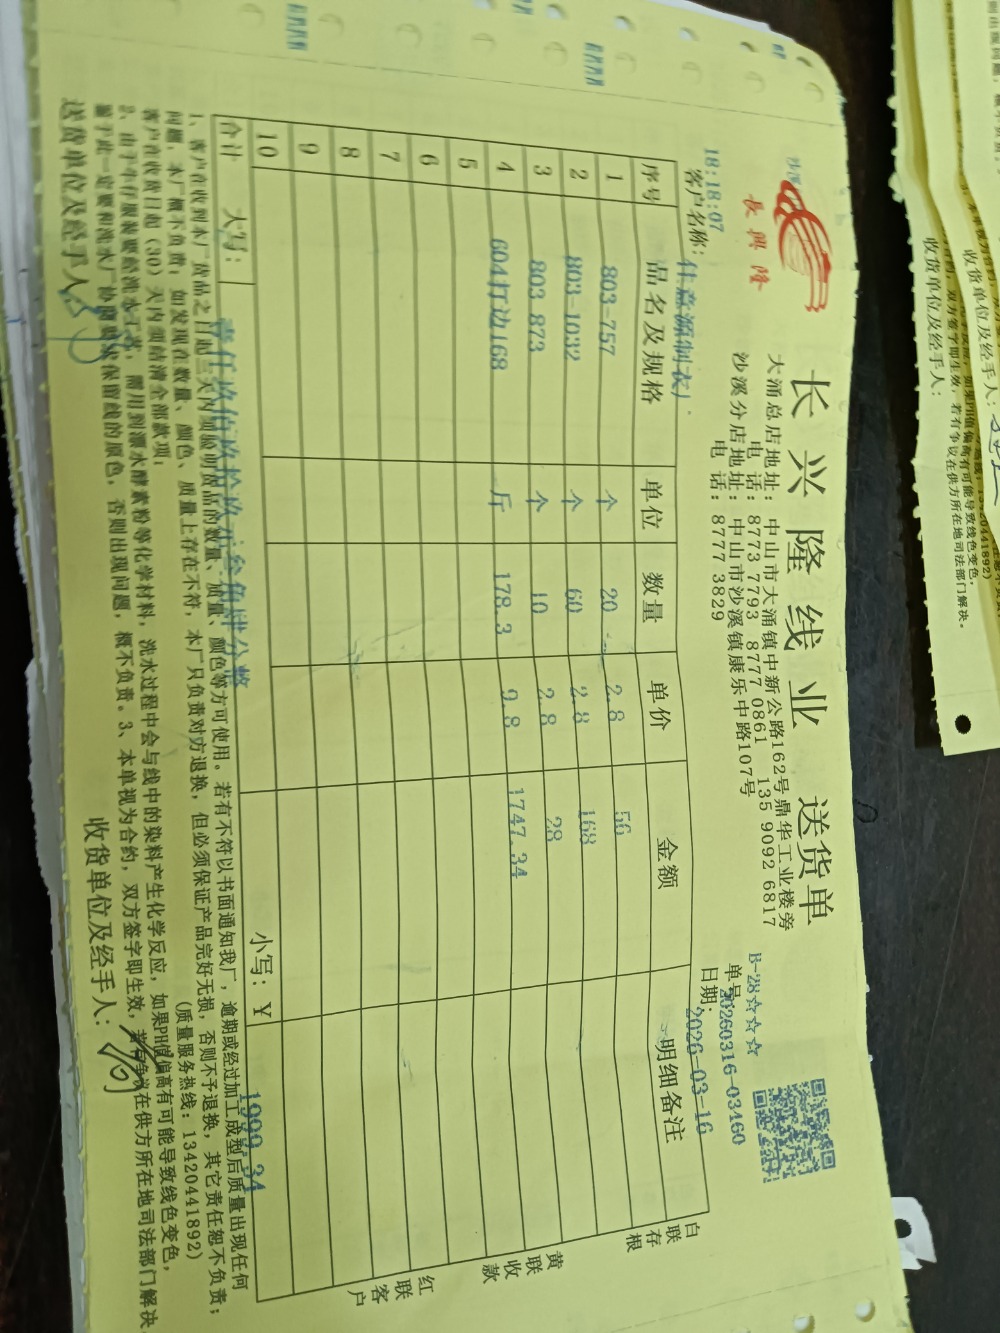 長興隆
长兴隆线业 送货单
大涌总店地址: 中山市大涌镇中新公路162号鼎华工业楼旁
电 话: 8773 7793 8777 0861 135 9092 6817
沙溪分店地址: 中山市沙溪镇康乐中路107号
电 话: 8777 3829
B-28☆☆☆☆
单号: 20260316-03460
日期: 2026-03-16
18:18:07
客户名称: 佳意源制衣厂
序号 品名及规格 单位 数量 单价 金额 明细备注
1 803-757 个 20 2.8 56
2 803-1032 个 60 2.8 168
3 803-873 个 10 2.8 28
4 604打边168 斤 178.3 9.8 1747.34
5
6
7
8
9
10
合计 大写: 壹仟玖佰玖拾玖元叁角肆分整 小写: ¥ 1999.34
白联存根
黄联收款
红联客户
1、客户在收到本厂货品之日起三天内须验明货品的数量、质量、颜色等方可使用。若有不符以书面通知我厂，逾期或经过加工成型后质量出现任何
问题，本厂概不负责；如发现在数量、颜色、质量上存在不符，本厂只负责对方退换，但必须保证产品完好无损，否则不予退换，其它责任恕不负责；
客户在收货日起（30）天内须结清全部款项；
(质量服务热线: 13420441892)
2、由于牛仔服装要经洗水工序，需用到漂水酵素粉等化学材料，洗水过程中会与线中的染料产生化学反应，如果PH值偏高有可能导致线色变色，
鉴于此一定要和洗水厂协调要求保留线的原色，否则出现问题，概不负责。3、本单视为合约，双方签字即生效，若有争议在供方所在地司法部门解决。
送货单位及经手人:
收货单位及经手人:
收货单位及经手人:
收货单位及经手人: